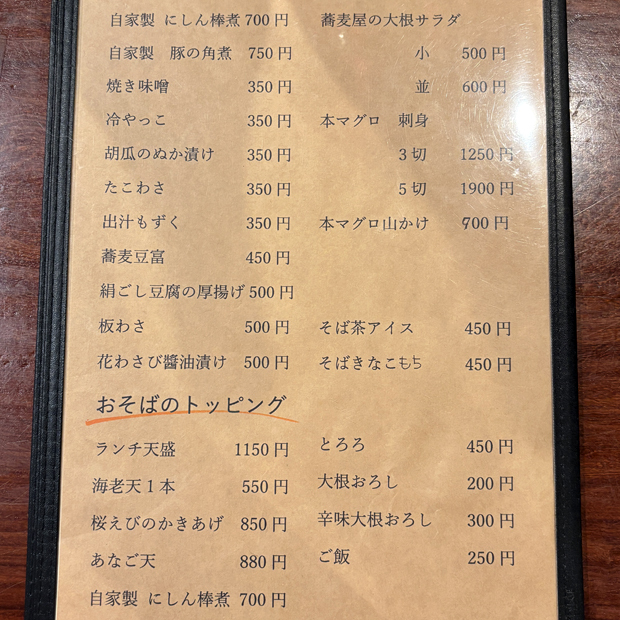 自家製 にしん棒煮 700円
自家製 豚の角煮 750円
焼き味噌 350円
冷やっこ 350円
胡瓜のぬか漬け 350円
たこわさ 350円
出汁もずく 350円
蕎麦豆富 450円
絹ごし豆腐の厚揚げ 500円
板わさ 500円
花わさび醬油漬け 500円
蕎麦屋の大根サラダ
小 500円
並 600円
本マグロ 刺身
3切 1250円
5切 1900円
本マグロ山かけ 700円
そば茶アイス 450円
そばきなこもち 450円
おそばのトッピング
ランチ天盛 1150円
海老天1本 550円
桜えびのかきあげ 850円
あなご天 880円
自家製 にしん棒煮 700円
とろろ 450円
大根おろし 200円
辛味大根おろし 300円
ご飯 250円